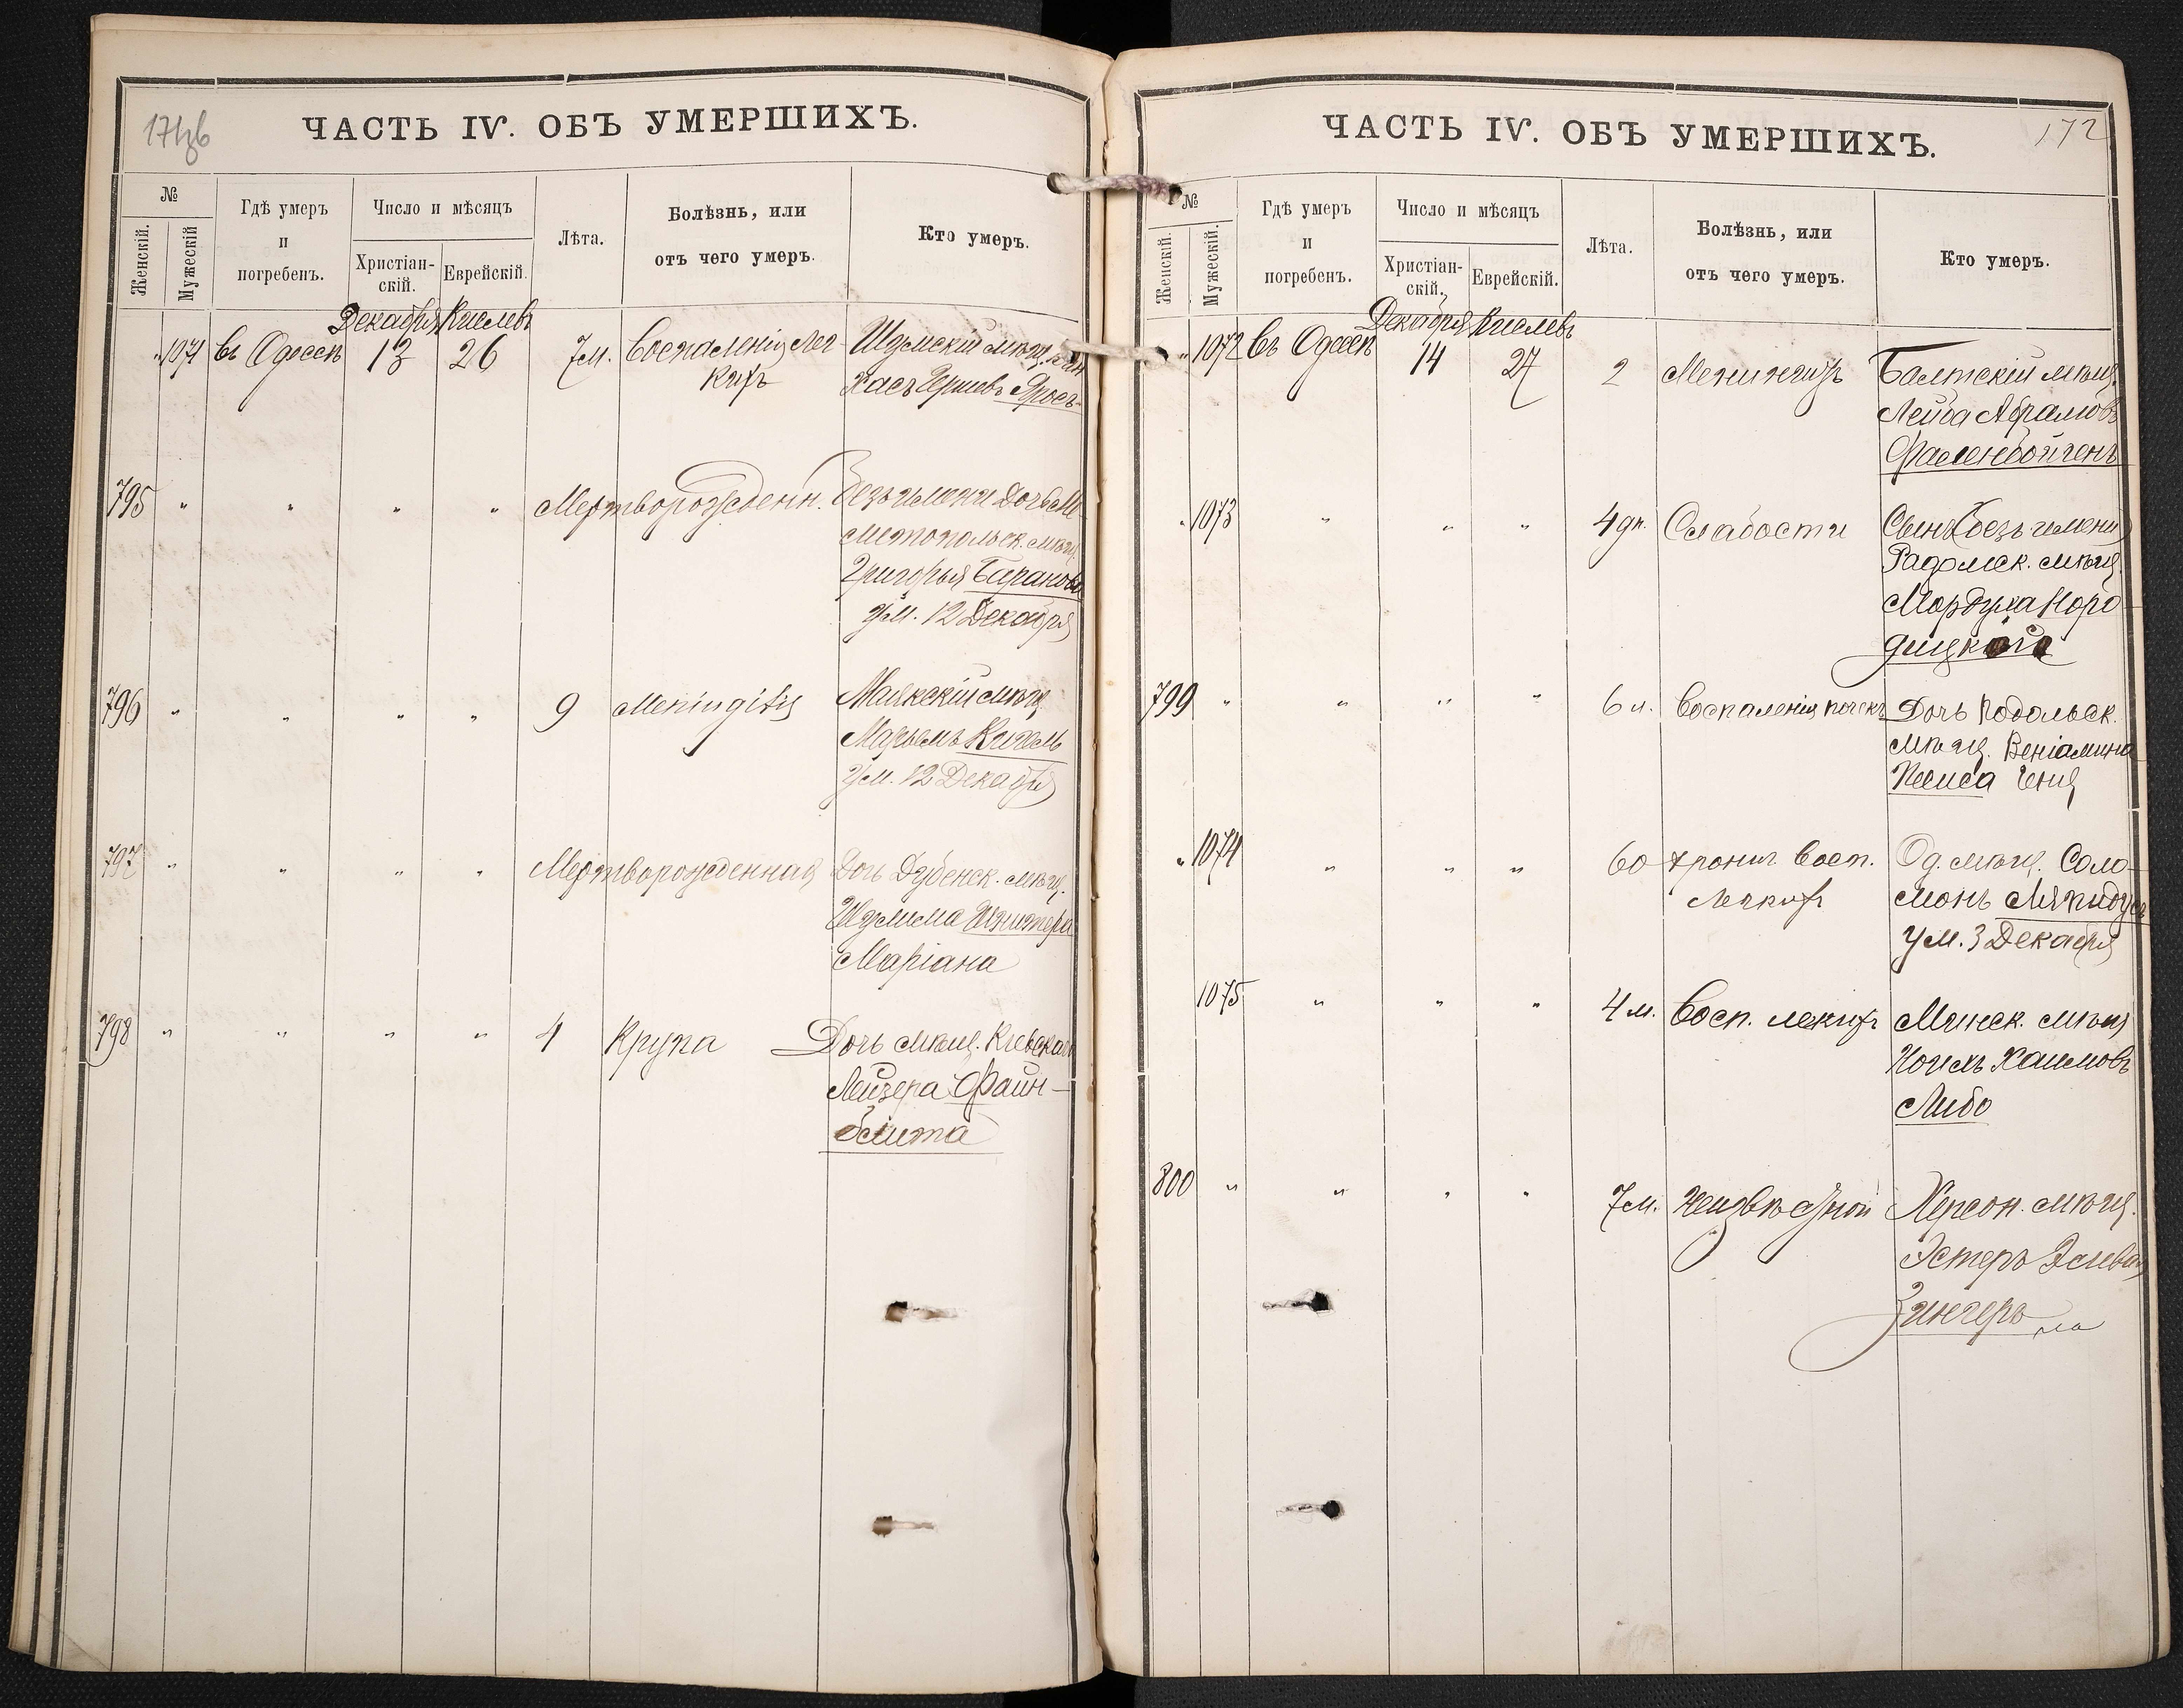 ЧАСТЬ IV. ОБЪ УМЕРШИХЪ.
№
Женскій.
Мужескій
Гдѣ умеръ
и
погребенъ.
Число и мѣсяцъ
Христіан-
скій.
Еврейскій.
Лѣта.
Болѣзнь, или
отъ чего умеръ.
Кто умеръ.
Декабря Кислевъ
" 1071 въ Одессѣ 13 26 7 м. Воспаленія лег-
кихъ
Шумскій мѣщ. Пин
хасъ Гершевъ Яросъ
795 " " " " Мертворожденн. Безъ имени Дочь Ме-
литопольск. мѣщ.
Григорья Баранова
ум. 12 Декабря
796 " " " " 9 Meningitis Маякскій мѣщ.
Марьемъ Кигель
ум. 12 Декабря
797 " " " " Мертворожденная Дочь Дубенск. мѣщ.
Шулима
Маріана
798 " " " " 4 Крупа Дочь мѣщ. Кіевскаго
Лейзера Файн-
блита
ЧАСТЬ IV. ОБЪ УМЕРШИХЪ.
172
№
Женскій.
Мужескій.
Гдѣ умеръ
и
погребенъ.
Число и мѣсяцъ
Христіан-
скій.
Еврейскій.
Лѣта.
Болѣзнь, или
отъ чего умеръ.
Кто умеръ.
Декабря Кислевъ
" 1072 въ Одессѣ 14 27 2 Менингитъ Балтскій мѣщ.
Лейба Абрамовъ
Фаленбойгенъ
" 1073 " " " 4 дн. Слабости Сынъ безъ имени
Радомск. мѣщ.
Мордуха Норо-
дицкого
799 " " " " 6 л. Воспаленія почекъ Дочь Подольск.
мѣщ. Веніамина
Пейса Ения
" 1074 " " " 60 хронич. Восп.
Легкихъ
Од. мѣщ. Соло-
монъ Ляпидусъ
ум. 3 Декабря
1075 " " " 4 м. Восп. легкихъ Минск. мѣщ.
Хаимовъ
Либо
800 " " " " 7 м. Неизвѣстной Херсон. мѣщ.
Эстеръ
Зингеръ